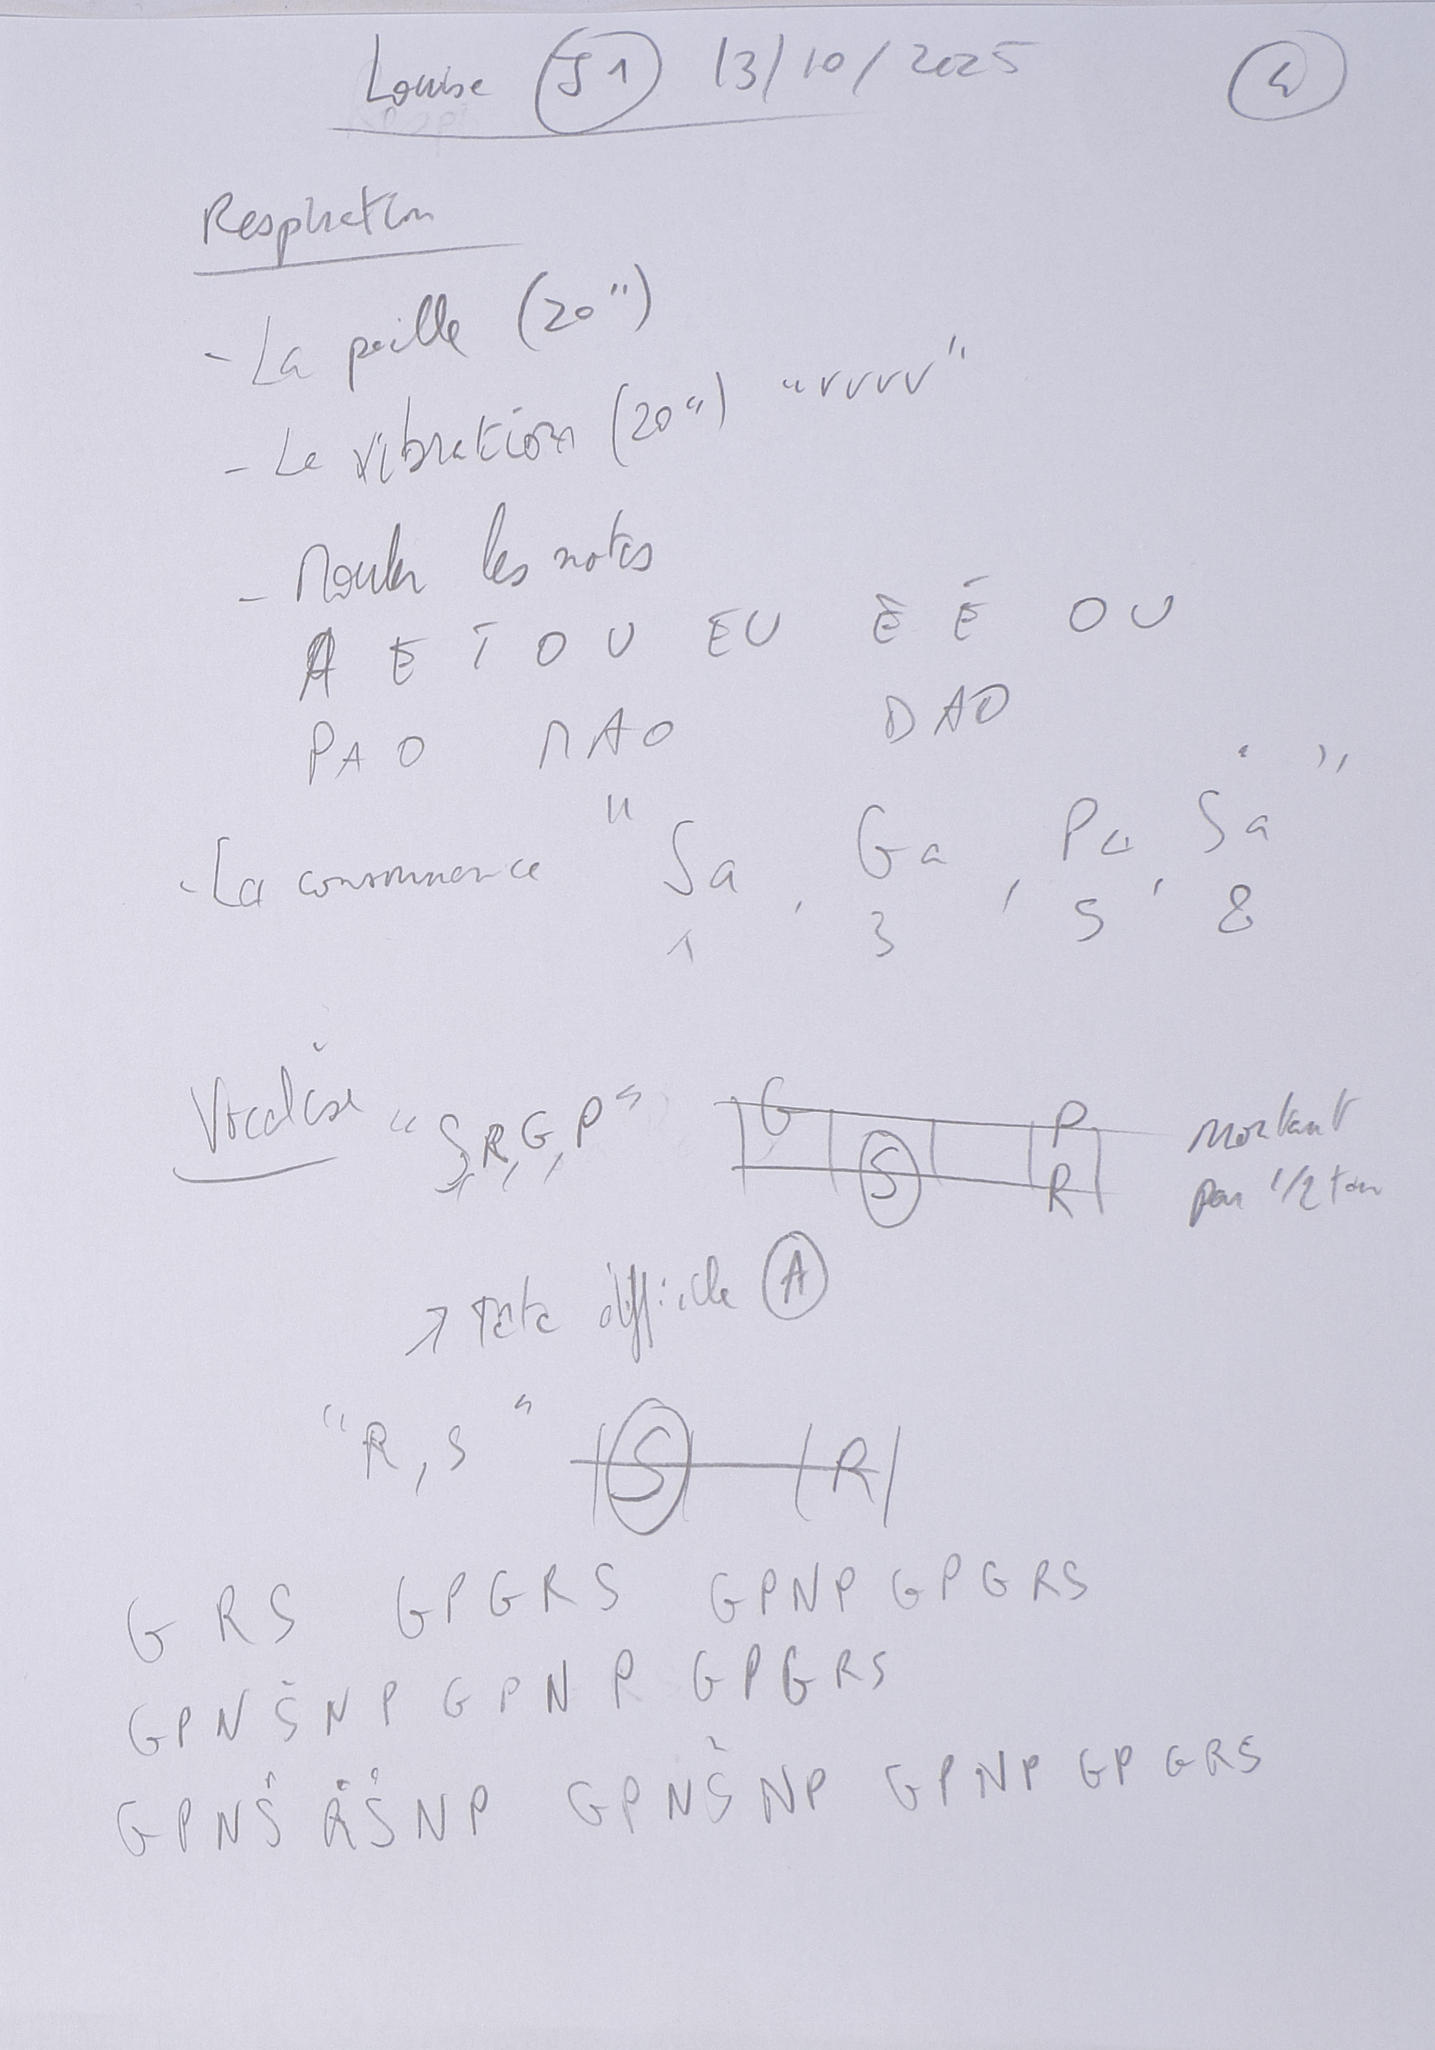 Louise S1 13/10/2025
Respiration
- La paille (20")
- La vibration (20") "vvvv"
- Monter les notes
A E I O U EU È É OU
PAO MAO DAO
- La consonnance "Sa, Ga, Pa, Ṡa"
1 3 5 8
Vocalise "S,R,G,P" G S P R montant
par 1/2 ton
→ difficile A
"R, S" S R
G R S GPGRS GPNPGPGRS
GPNṠNP GPNP GPGRS
GPNṠ ṘṠNP GPNṠNP GPNP GP GRS